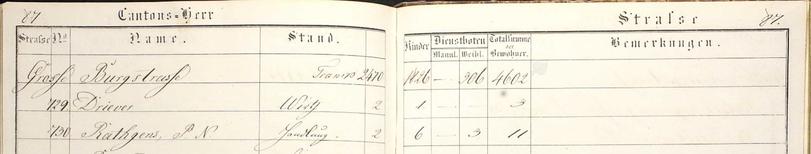 87. Cantons=Herr Strasse 87.
Strasse No Name. Stand. Kinder Dienstboten Totalsumme der Bewohner. Bemerkungen.
Mannl. Weibl.
Grosse Burgstrasse Transp 2470 1826 — 306 4602
729 Driever 2 1 — — 3
730 Rathgens, P. N. Handlung. 2 6 — 3 11